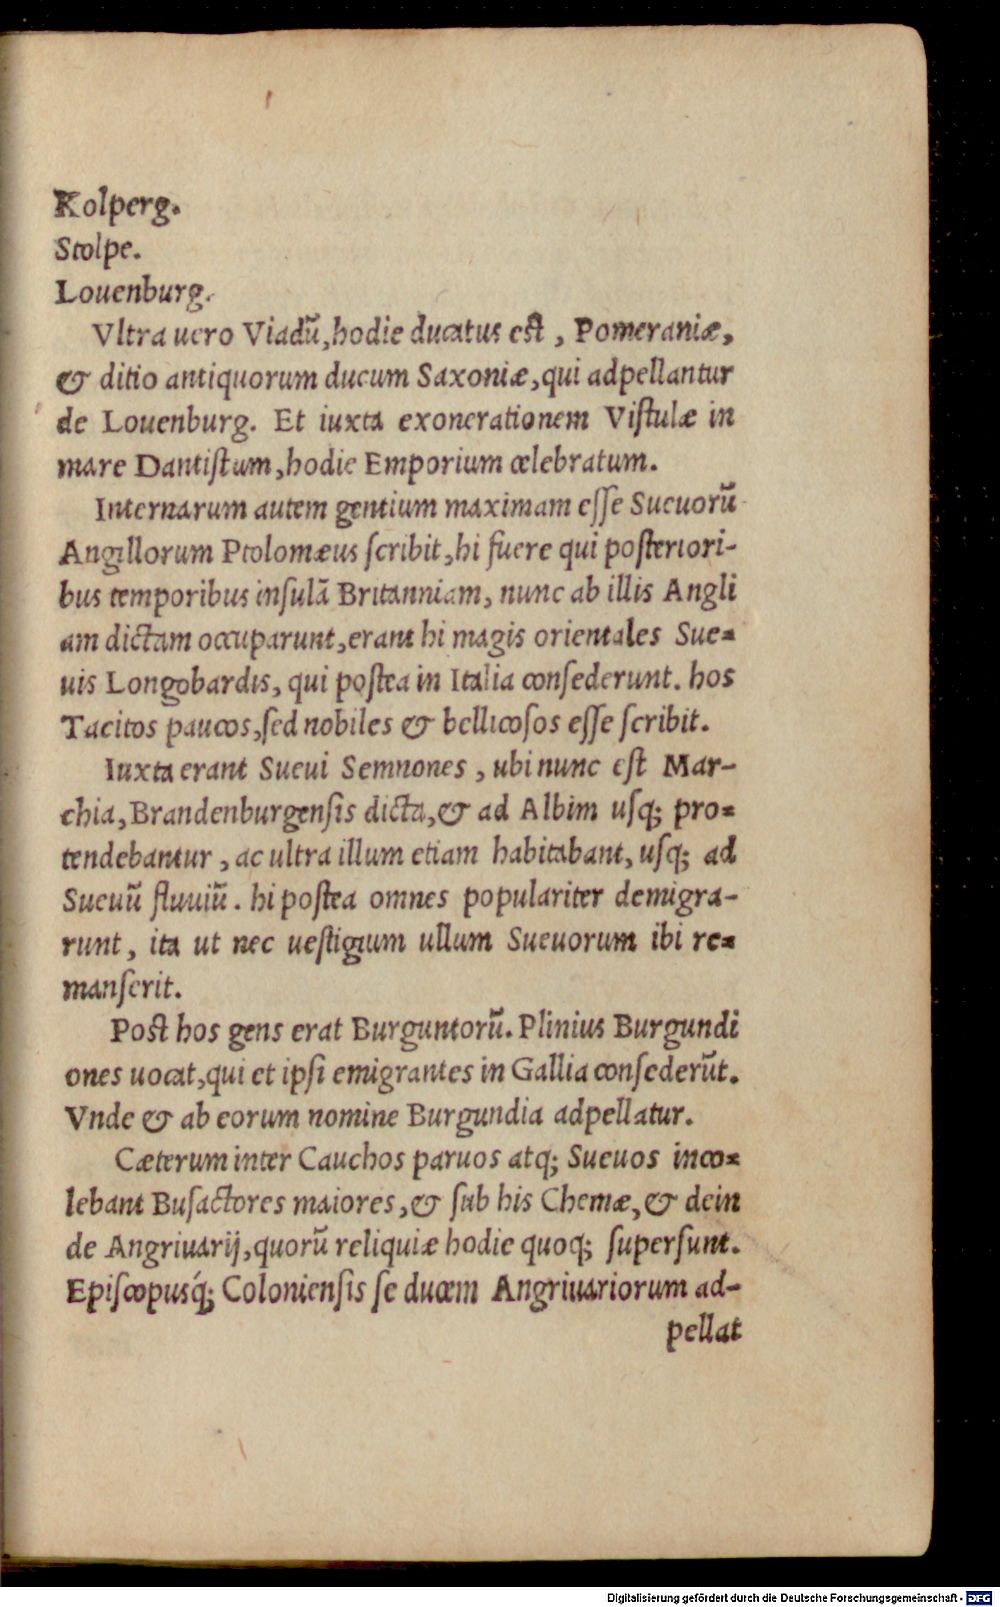 Kolperg.
Stolpe.
Louenburg.
Vltra uero Viadū, hodie ducatus est, Pomeraniæ,
& ditio antiquorum ducum Saxoniæ, qui adpellantur
de Louenburg. Et iuxta exonerationem Vistulæ in
mare Dantistum, hodie Emporium celebratum.
Internarum autem gentium maximam esse Sueuorū
Angillorum Ptolomæus scribit, hi fuere qui posteriori-
bus temporibus insulā Britanniam, nunc ab illis Angli
am dictam occuparunt, erant hi magis orientales Sue=
uis Longobardis, qui postea in Italia consederunt. hos
Tacitos paucos, sed nobiles & bellicosos esse scribit.
Iuxta erant Sueui Semnones, ubi nunc est Mar-
chia, Brandenburgensis dicta, & ad Albim usq; pro=
tendebantur, ac ultra illum etiam habitabant, usq; ad
Sueuū fluuiū. hi postea omnes populariter demigra-
runt, ita ut nec uestigium ullum Sueuorum ibi re=
manserit.
Post hos gens erat Burguntorū. Plinius Burgundi
ones uocat, qui et ipsi emigrantes in Gallia consederūt.
Vnde & ab eorum nomine Burgundia adpellatur.
Cæterum inter Cauchos paruos atq; Sueuos inco=
lebant Busactores maiores, & sub his Chemæ, & dein
de Angriuarij, quorū reliquiæ hodie quoq; supersunt.
Episcopusq́; Coloniensis se ducem Angriuariorum ad-
pellat
Digitalisierung gefördert durch die Deutsche Forschungsgemeinschaft - DFG